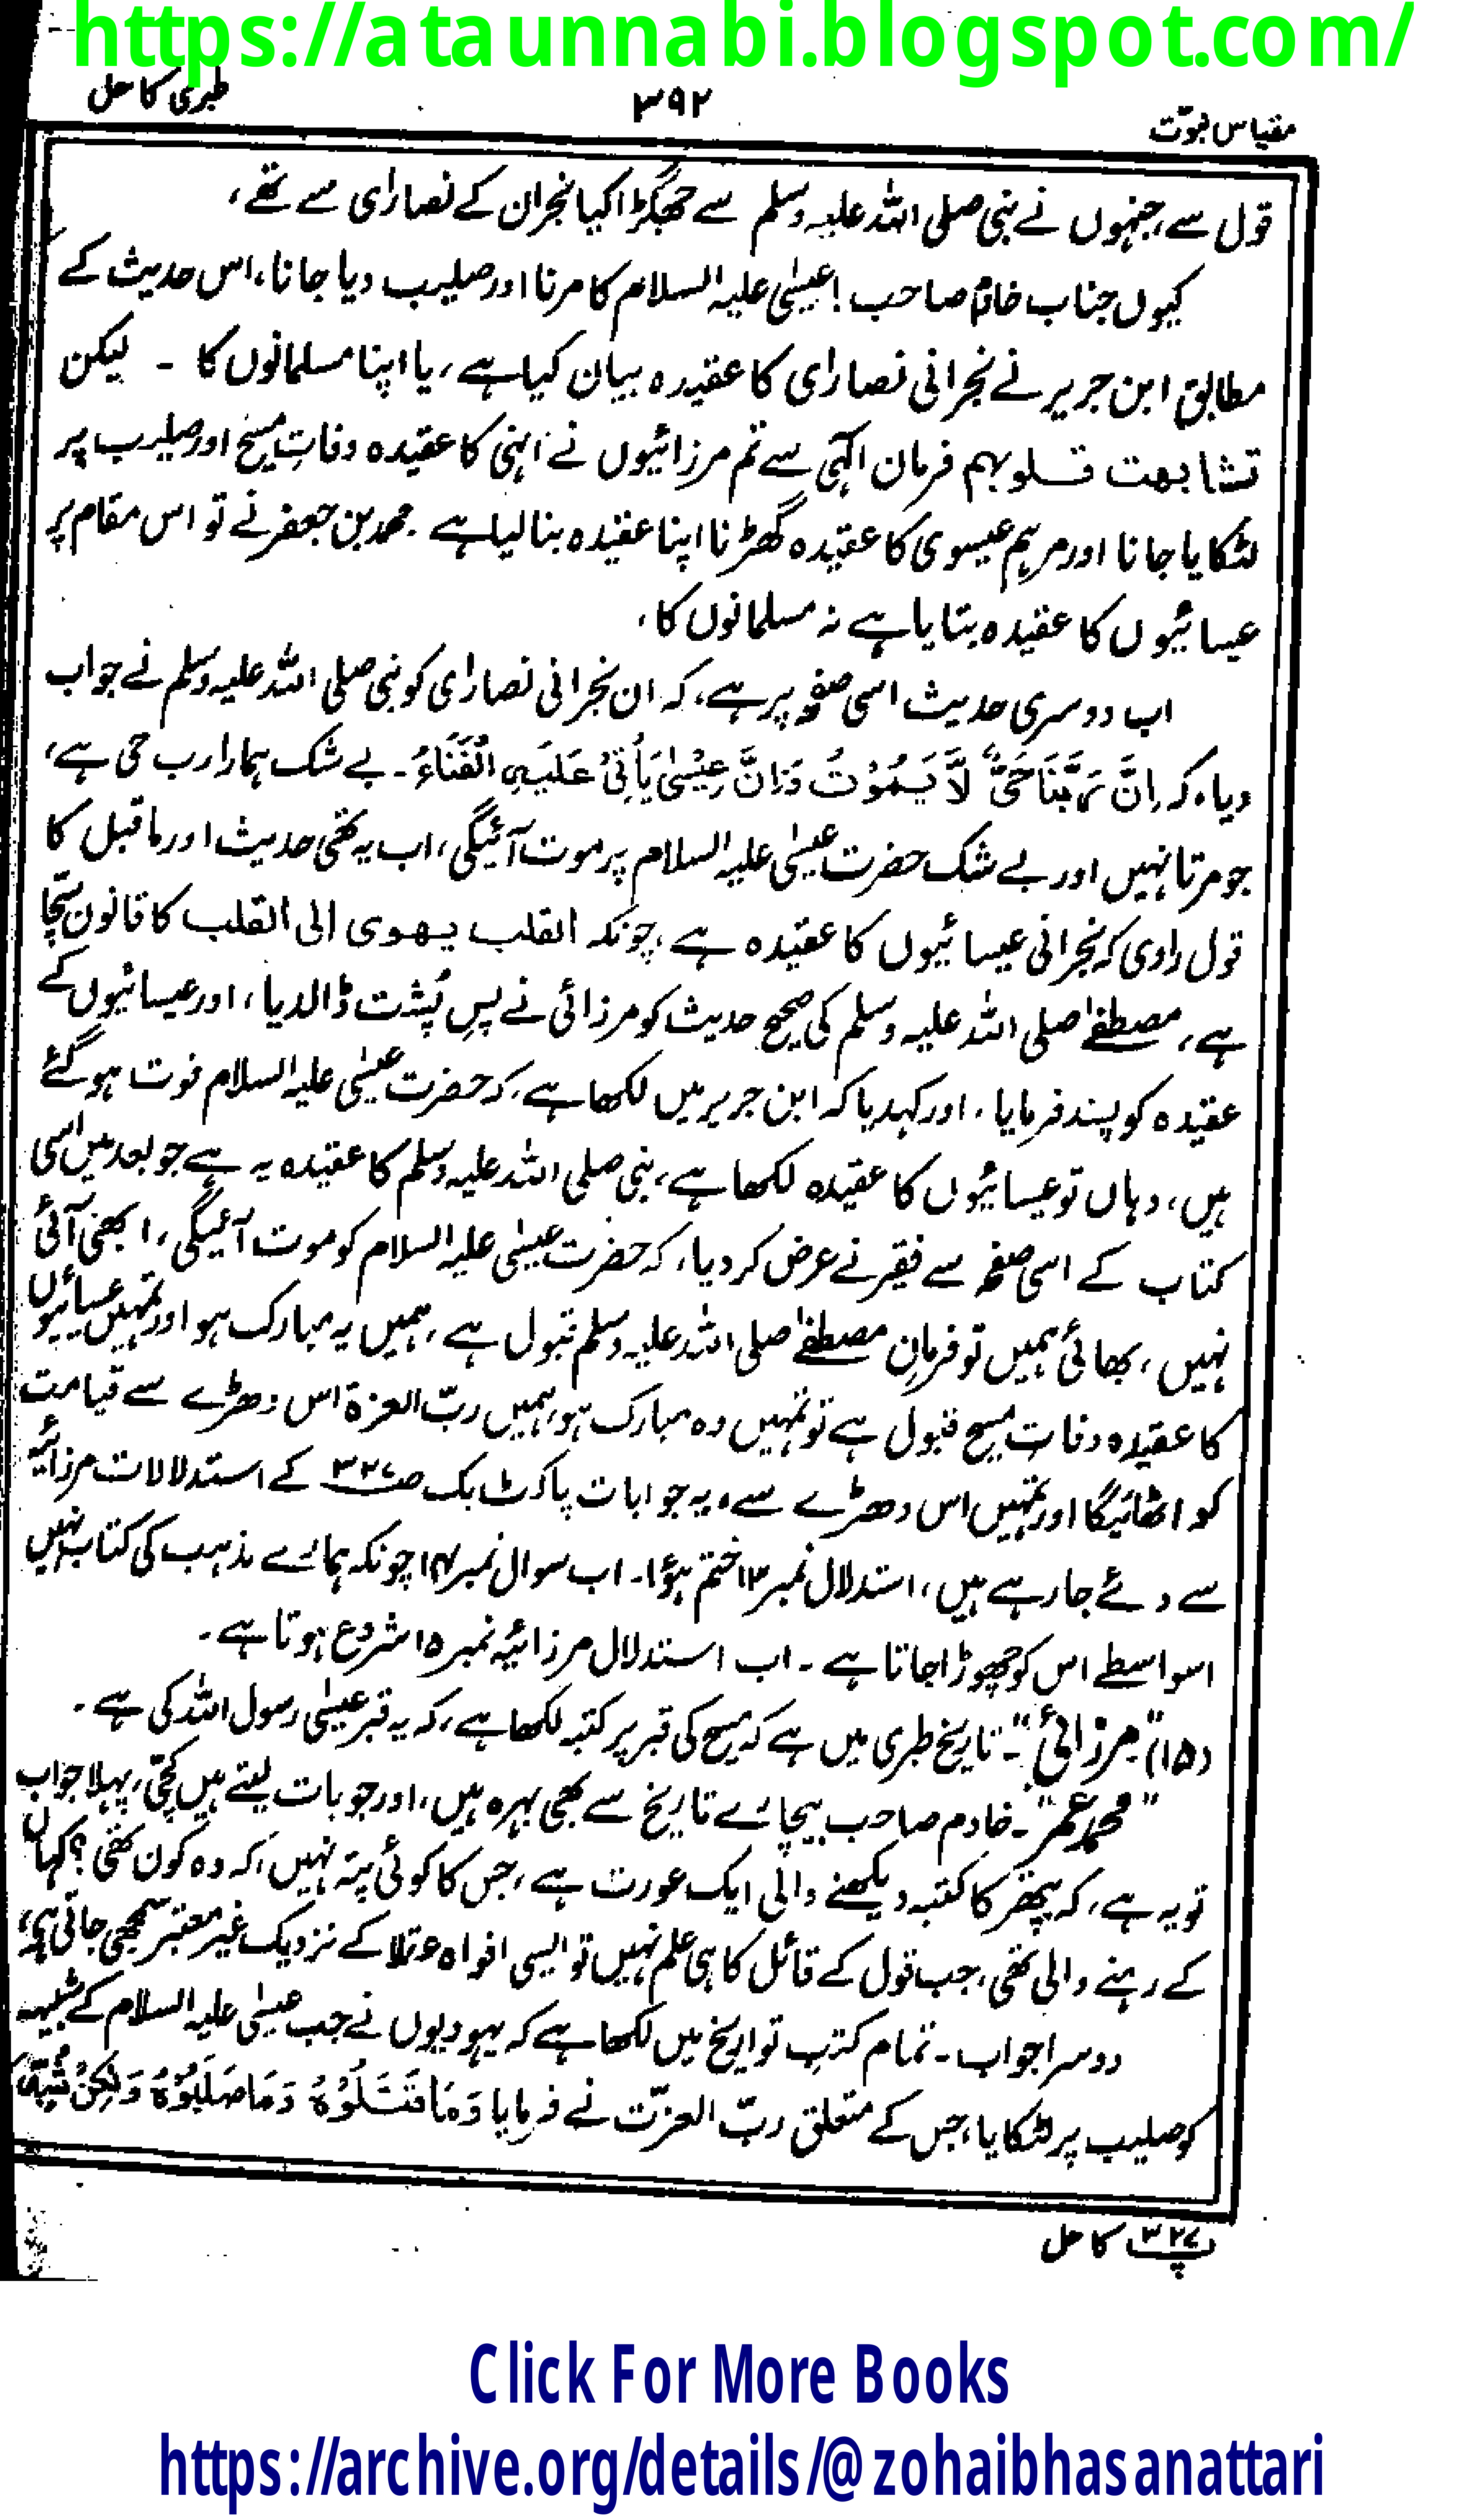 https://ataunnabi.blogspot.com/
مقیاس نبوّت ۳۹۲ طبری کا حل
قول سے، جنہوں نے نبی صلی اللہ علیہ وسلم سے جھگڑا کیا نجران کے نصارٰی سے تھے،
کیوں جناب خادم صاحب! عیسٰی علیہ السلام کا مرنا اور صلیب دیا جانا، اس حدیث کے
مطابق ابن جریر نے نجرانی نصارٰی کا عقیدہ بیان کیا ہے، یا اپنا مسلمانوں کا ۔ لیکن
تشابھت قلوبہم فرمان الٰہی سے تم مرزائیوں نے انہی کا عقیدہ وفاتِ مسیح اور صلیب پر
لٹکایا جانا اور مرہم عیسوی کا عقیدہ گھڑنا اپنا عقیدہ بنا لیا ہے ۔ محمد بن جعفر نے تو اس مقام پر
عیسائیوں کا عقیدہ بتایا ہے نہ مسلمانوں کا،
اب دوسری حدیث اسی صفحہ پر ہے، کہ ان نجرانی نصارٰی کو نبی صلی اللہ علیہ وسلم نے جواب
دیا، کہ اِنَّ رَبَّنَا حَیٌّ لَّا یَمُوْتُ وَاِنَّ عِیْسٰی یَأْتِیْ عَلَیْہِ الْفَنَاءُ ۔ بے شک ہمارا رب حی ہے،
جو مرتا نہیں اور بے شک حضرت عیسٰی علیہ السلام پر موت آئیگی، اب یہ تھی حدیث اور ماقبل کا
قول راوی کہ نجرانی عیسائیوں کا عقیدہ ہے، چونکہ القلب یھوی الی القلب کا قانون سچا
ہے، مصطفےٰ صلی اللہ علیہ وسلم کی صحیح حدیث کو مرزائی نے پسِ پُشت ڈالدیا، اور عیسائیوں کے
عقیدہ کو پسند فرمایا، اور کہدیا کہ ابن جریر میں لکھا ہے، کہ حضرت عیسٰی علیہ السلام فوت ہو گئے
ہیں، وہاں تو عیسائیوں کا عقیدہ لکھا ہے، نبی صلی اللہ علیہ وسلم کا عقیدہ یہ ہے جو بعد میں اسی
کتاب کے اسی صفحہ سے فقیر نے عرض کر دیا، کہ حضرت عیسٰی علیہ السلام کو موت آئیگی، ابھی آئی
نہیں، بھائی ہمیں تو فرمانِ مصطفےٰ صلی اللہ علیہ وسلم قبول ہے، ہمیں یہ مبارک ہو اور تمہیں عیسائیوں
کا عقیدہ وفات مسیح قبول ہے تو تمہیں وہ مبارک ہو، ہمیں ربّ العزۃ اس دھڑے سے قیامت
کو اٹھائیگا اور تمہیں اس دھڑے سے، یہ جوابات پاکٹ بک ص۳۲۷ کے استدلالات مرزائیہ
سے دئے جا رہے ہیں، استدلال نمبر ۱۳ ختم ہؤا۔ اب سوال نمبر ۱۴ چونکہ ہمارے مذہب کی کتاب نہیں
اسواسطے اس کو چھوڑا جاتا ہے ۔ اب استدلال مرزائیہ نمبر ۱۵ شروع ہوتا ہے ۔
(۱۵) "مرزائی" ۔ تاریخ طبری میں ہے کہ مسیح کی قبر پر کتبہ لکھا ہے، کہ یہ قبر عیسٰی رسول اللہ کی ہے ۔
"محمد عمر" ۔ خادم صاحب بیچارے تاریخ سے بھی بہرہ ہیں، اور جو بات لیتے ہیں کچی، پہلا جواب
تو یہ ہے، کہ پتھر کا کتبہ دیکھنے والی ایک عورت ہے، جس کا کوئی پتہ نہیں، کہ وہ کون تھی؟ کہاں
کے رہنے والی تھی، جب قول کے قائل کا ہی علم نہیں تو ایسی افواہ عقلا کے نزدیک غیر معتبر سمجھی جاتی ہے،
دوسرا جواب ۔ تمام کتبِ تواریخ میں لکھا ہے کہ یہودیوں نے جب عیسٰی علیہ السلام کے شبیہہ
کو صلیب پر لٹکایا، جس کے متعلق ربّ العزّت نے فرمایا وَمَا قَتَلُوْہُ وَمَا صَلَبُوْہُ وَلٰکِنْ شُبِّہَ
پ ۳۲۷ کا حل
Click For More Books
https://archive.org/details/@zohaibhasanattari